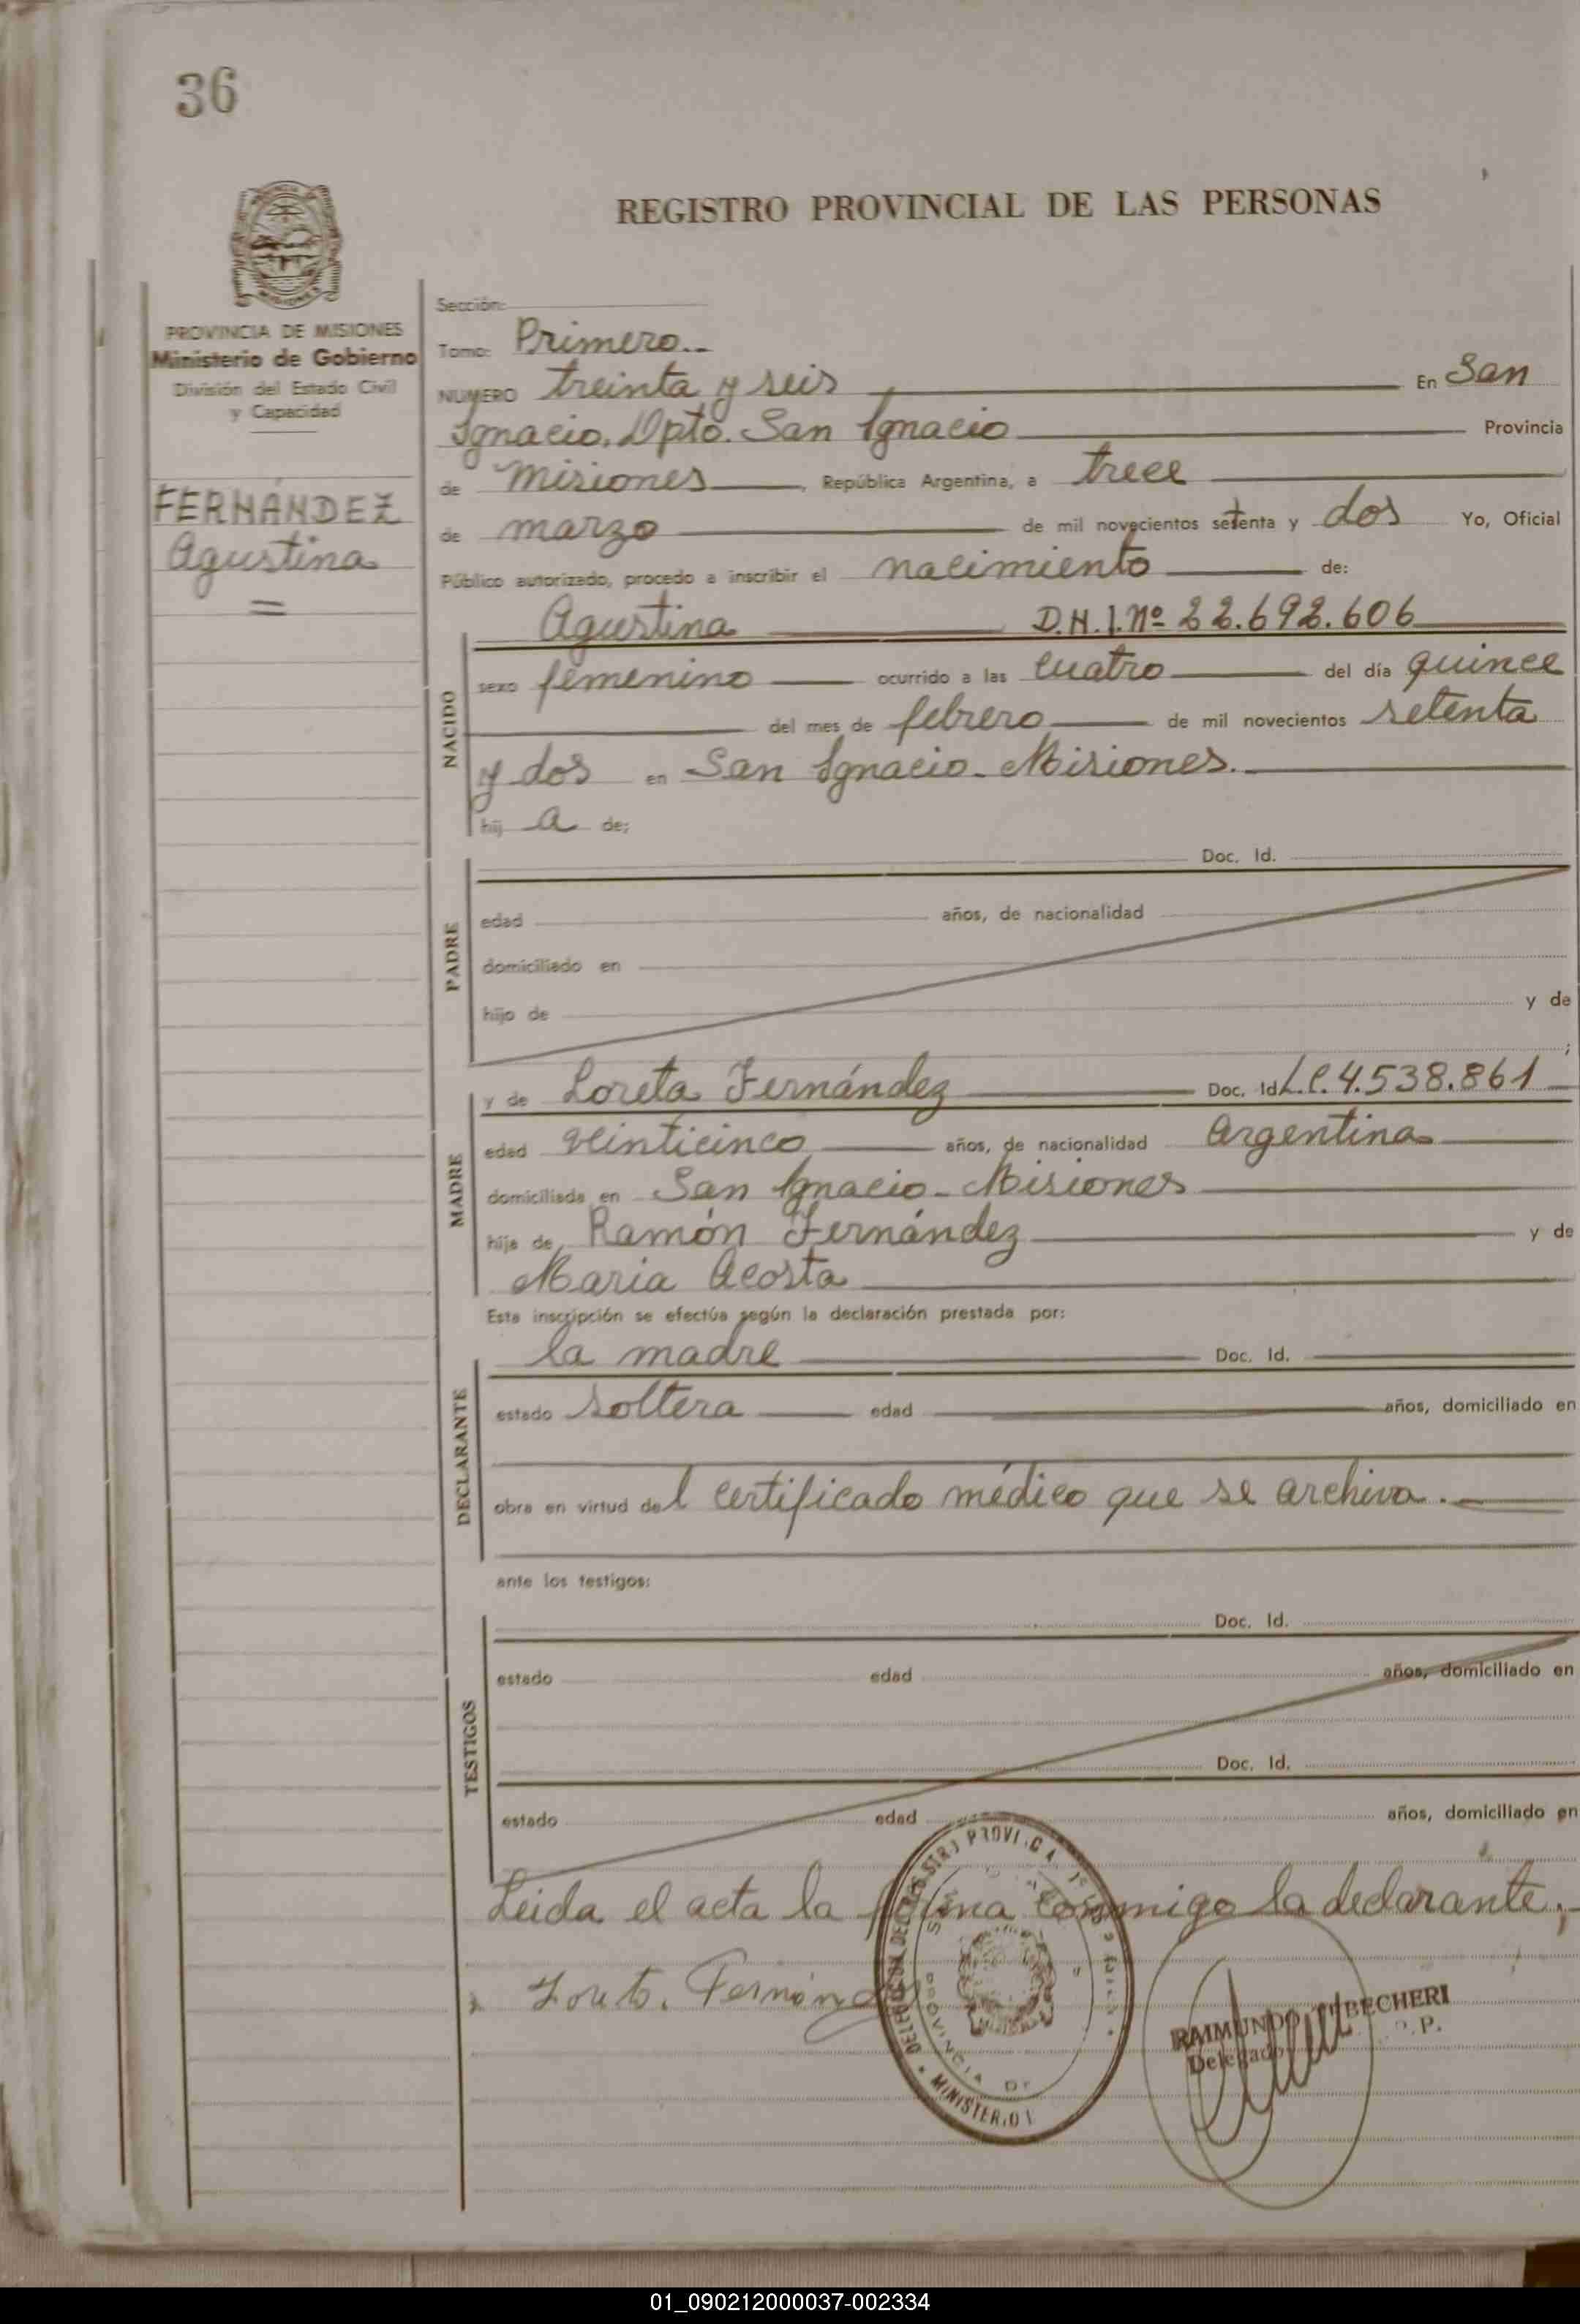 36
REGISTRO PROVINCIAL DE LAS PERSONAS
PROVINCIA DE MISIONES
Ministerio de Gobierno
División del Estado Civil
y Capacidad
FERNÁNDEZ
Agustina
Sección:
Tomo: Primero.-
NUMERO treinta y seis En San
Ignacio. Dpto. San Ignacio Provincia
de Misiones, República Argentina, a trece
de marzo de mil novecientos setenta y dos Yo, Oficial
Público autorizado, procedo a inscribir el nacimiento de:
Agustina D.N.I. Nº 22.692.606
NACIDO
sexo femenino ocurrido a las cuatro del día quince
del mes de febrero de mil novecientos setenta
y dos en San Ignacio - Misiones.
hij a de;
PADRE
Doc. Id.
edad años, de nacionalidad
domiciliado en
hijo de y de
;
MADRE
y de Loreta Fernández Doc. Id L.C. 4.538.861
edad veinticinco años, de nacionalidad Argentina
domiciliada en San Ignacio - Misiones
hija de Ramón Fernández y de
Maria Acosta
Esta inscripción se efectúa según la declaración prestada por:
DECLARANTE
la madre Doc. Id.
estado soltera edad años, domiciliado en
obra en virtud del certificado médico que se archiva.
ante los testigos:
TESTIGOS
Doc. Id.
estado edad años, domiciliado en
Doc. Id.
estado edad años, domiciliado en
Leida el acta la firma conmigo la declarante;
PROVINCIA DE
RAIMUNDO
Delegado